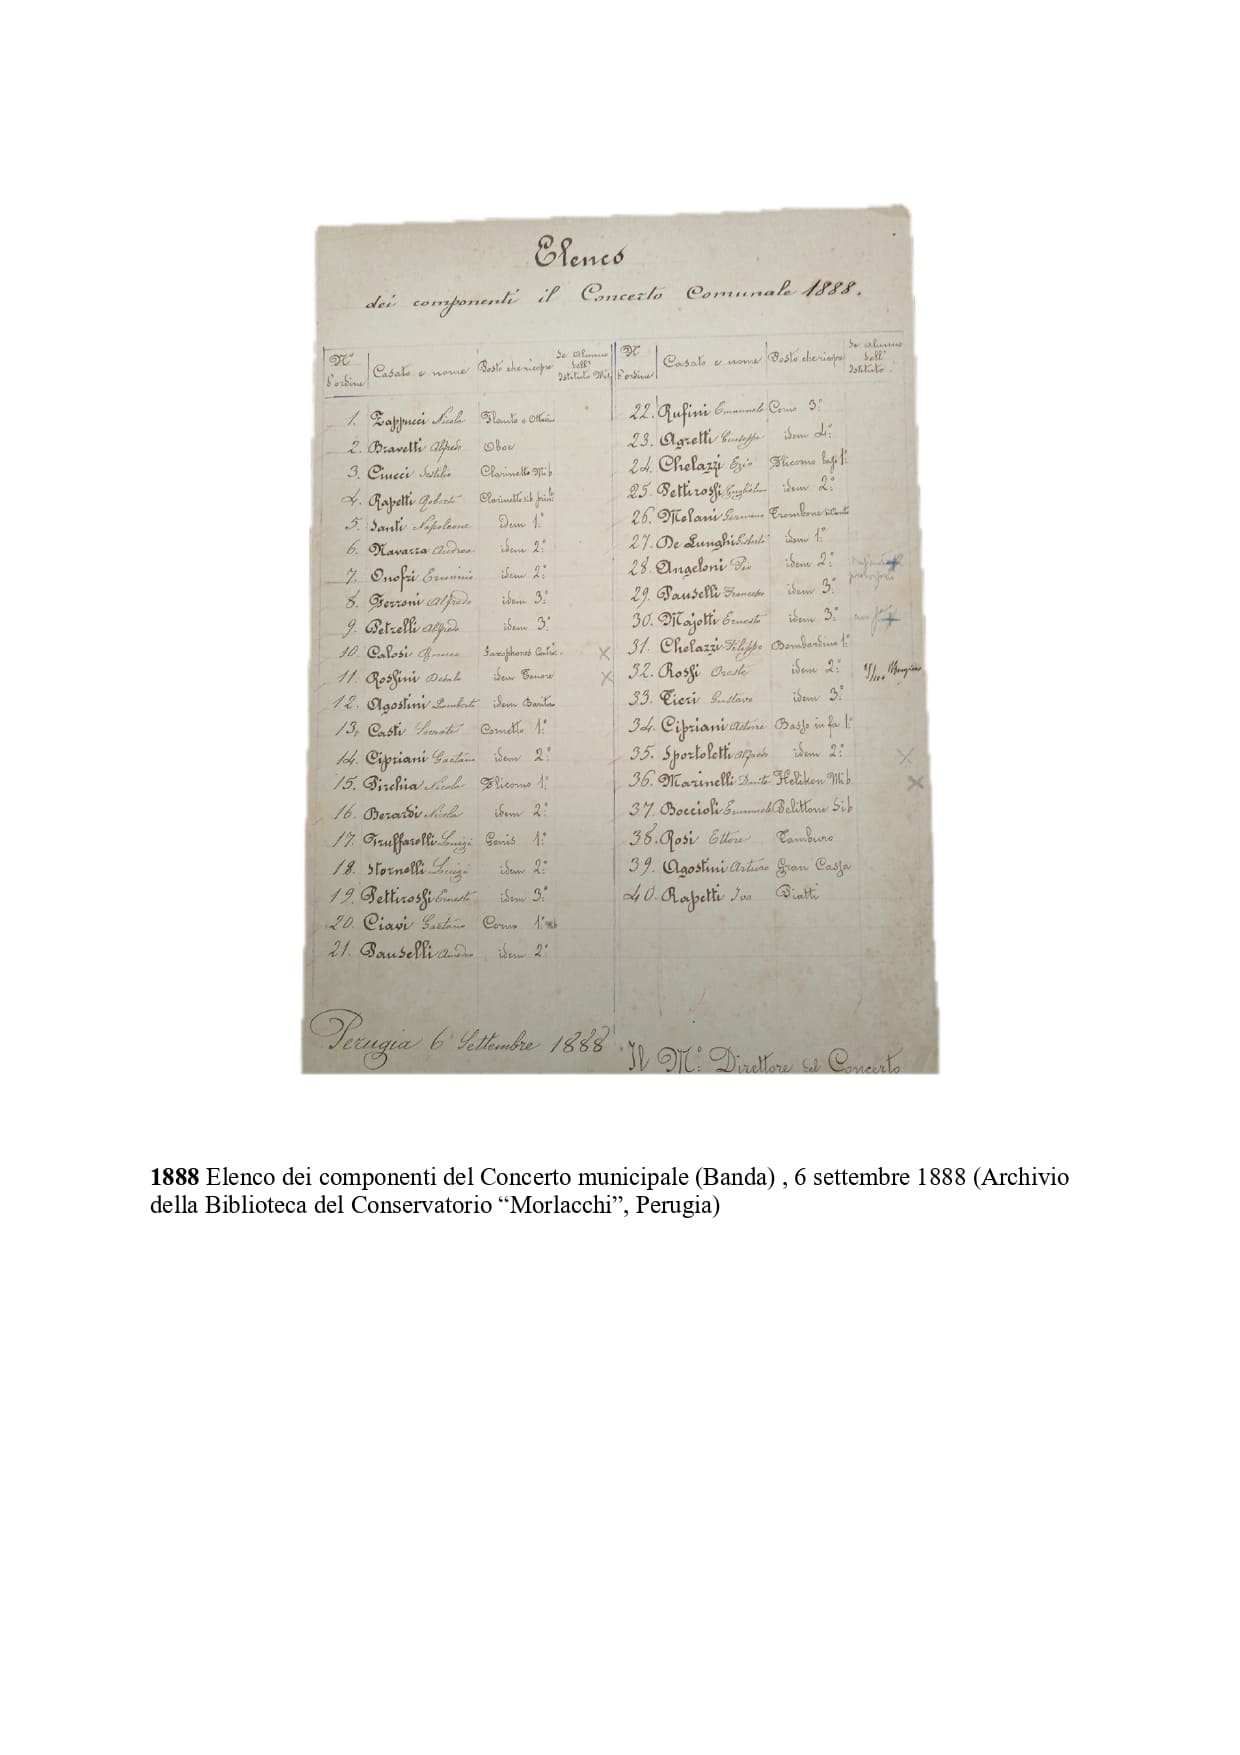 Elenco
dei componenti il Concerto Comunale 1888.
N° d'ordine Casato e nome Posto che ricopre Se Alunno dell' Istituto Mle
1. Zappucci Nicola Flauto e Ottavino
2. Bravetti Alfredo Oboe
3. Ciucci Clarinetto Mib
4. Rapetti Roberto Clarinetto sib
5. Santi Napoleone idem 1°
6. Navarra Andrea idem 2°
7. Onofri Erminio idem 2°
8. Ferroni Alfredo idem 3°
9. Petrelli Alfredo idem 3°
10. Calosi Saxophones
11. Rossini idem Tenore
12. Agostini Lamberto idem Baritono
13. Casti Socrate Cornetto 1°
14. Cipriani Gaetano idem 2°
15. Pirchia Nicola Flicorno 1°
16. Berardi Nicola idem 2°
17. Truffarelli Luigi Genis 1°
18. Stornelli Luigi idem 2°
19. Pettirossi Ernesto idem 3°
20. Ciavi Gaetano Corno 1°
21. Pauselli Amedeo idem 2°
N d'ordine Casato e nome Posto che ricopre Se Alunno dell' Istituto
22. Rufini Emanuele Corno 3°
23. Agretti Giuseppe idem 4°
24. Chelazzi Ezio Flicorno 1°
25. Pettirossi Guglielmo idem 2°
26. Melani Germano Trombone
27. De Lunghi idem 1°
28. Angeloni Pio idem 2°
29. Pauselli Francesco idem 3°
30. Majotti Ernesto idem 3°
31. Chelazzi Filippo Bombardino 1°
32. Rossi Oreste idem 2°
33. Tieri Gustavo idem 3°
34. Cipriani Astorre Basso in fa 1°
35. Sportoletti Alfredo idem 2°
36. Marinelli Dante Helikon Mib
37. Boccioli Emanuele Pelittone Sib
38. Rosi Ettore Tamburo
39. Agostini Arturo Gran Cassa
40. Rapetti Ivo Piatti
Perugia 6 Settembre 1888
Il M° Direttore del Concerto
1888 Elenco dei componenti del Concerto municipale (Banda) , 6 settembre 1888 (Archivio
della Biblioteca del Conservatorio “Morlacchi”, Perugia)